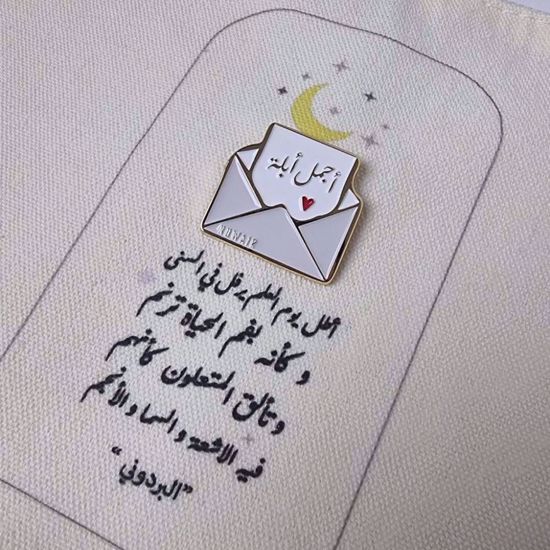 أجمل أبلة
أطل يوم العلم يرفل في السنى
و كأنه بفم الحياة ترنم
وتألق المتعلون كأنهم
فيه الاشعة و السما و الأنجم
"البردوني"